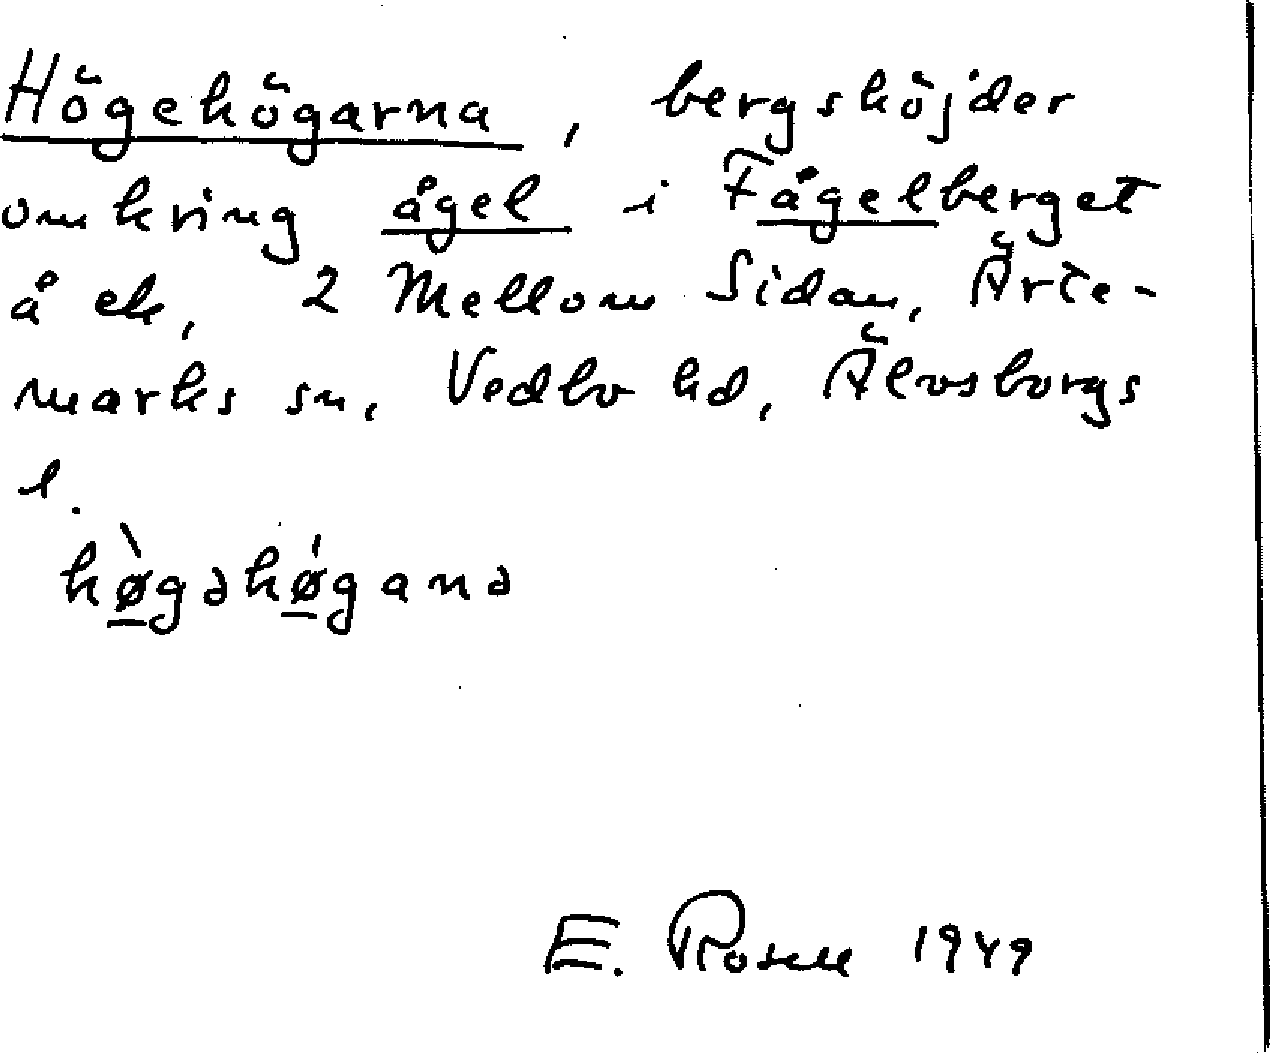 Högehögarna, bergshöjder
omkring ågel i Fågelberget
å ek, 2 Mellom Sidan, Ärte-
marks sn, Vedbo hd, Älvsborgs
l.
hø̀gəhǿganə
E. Rosell 1949